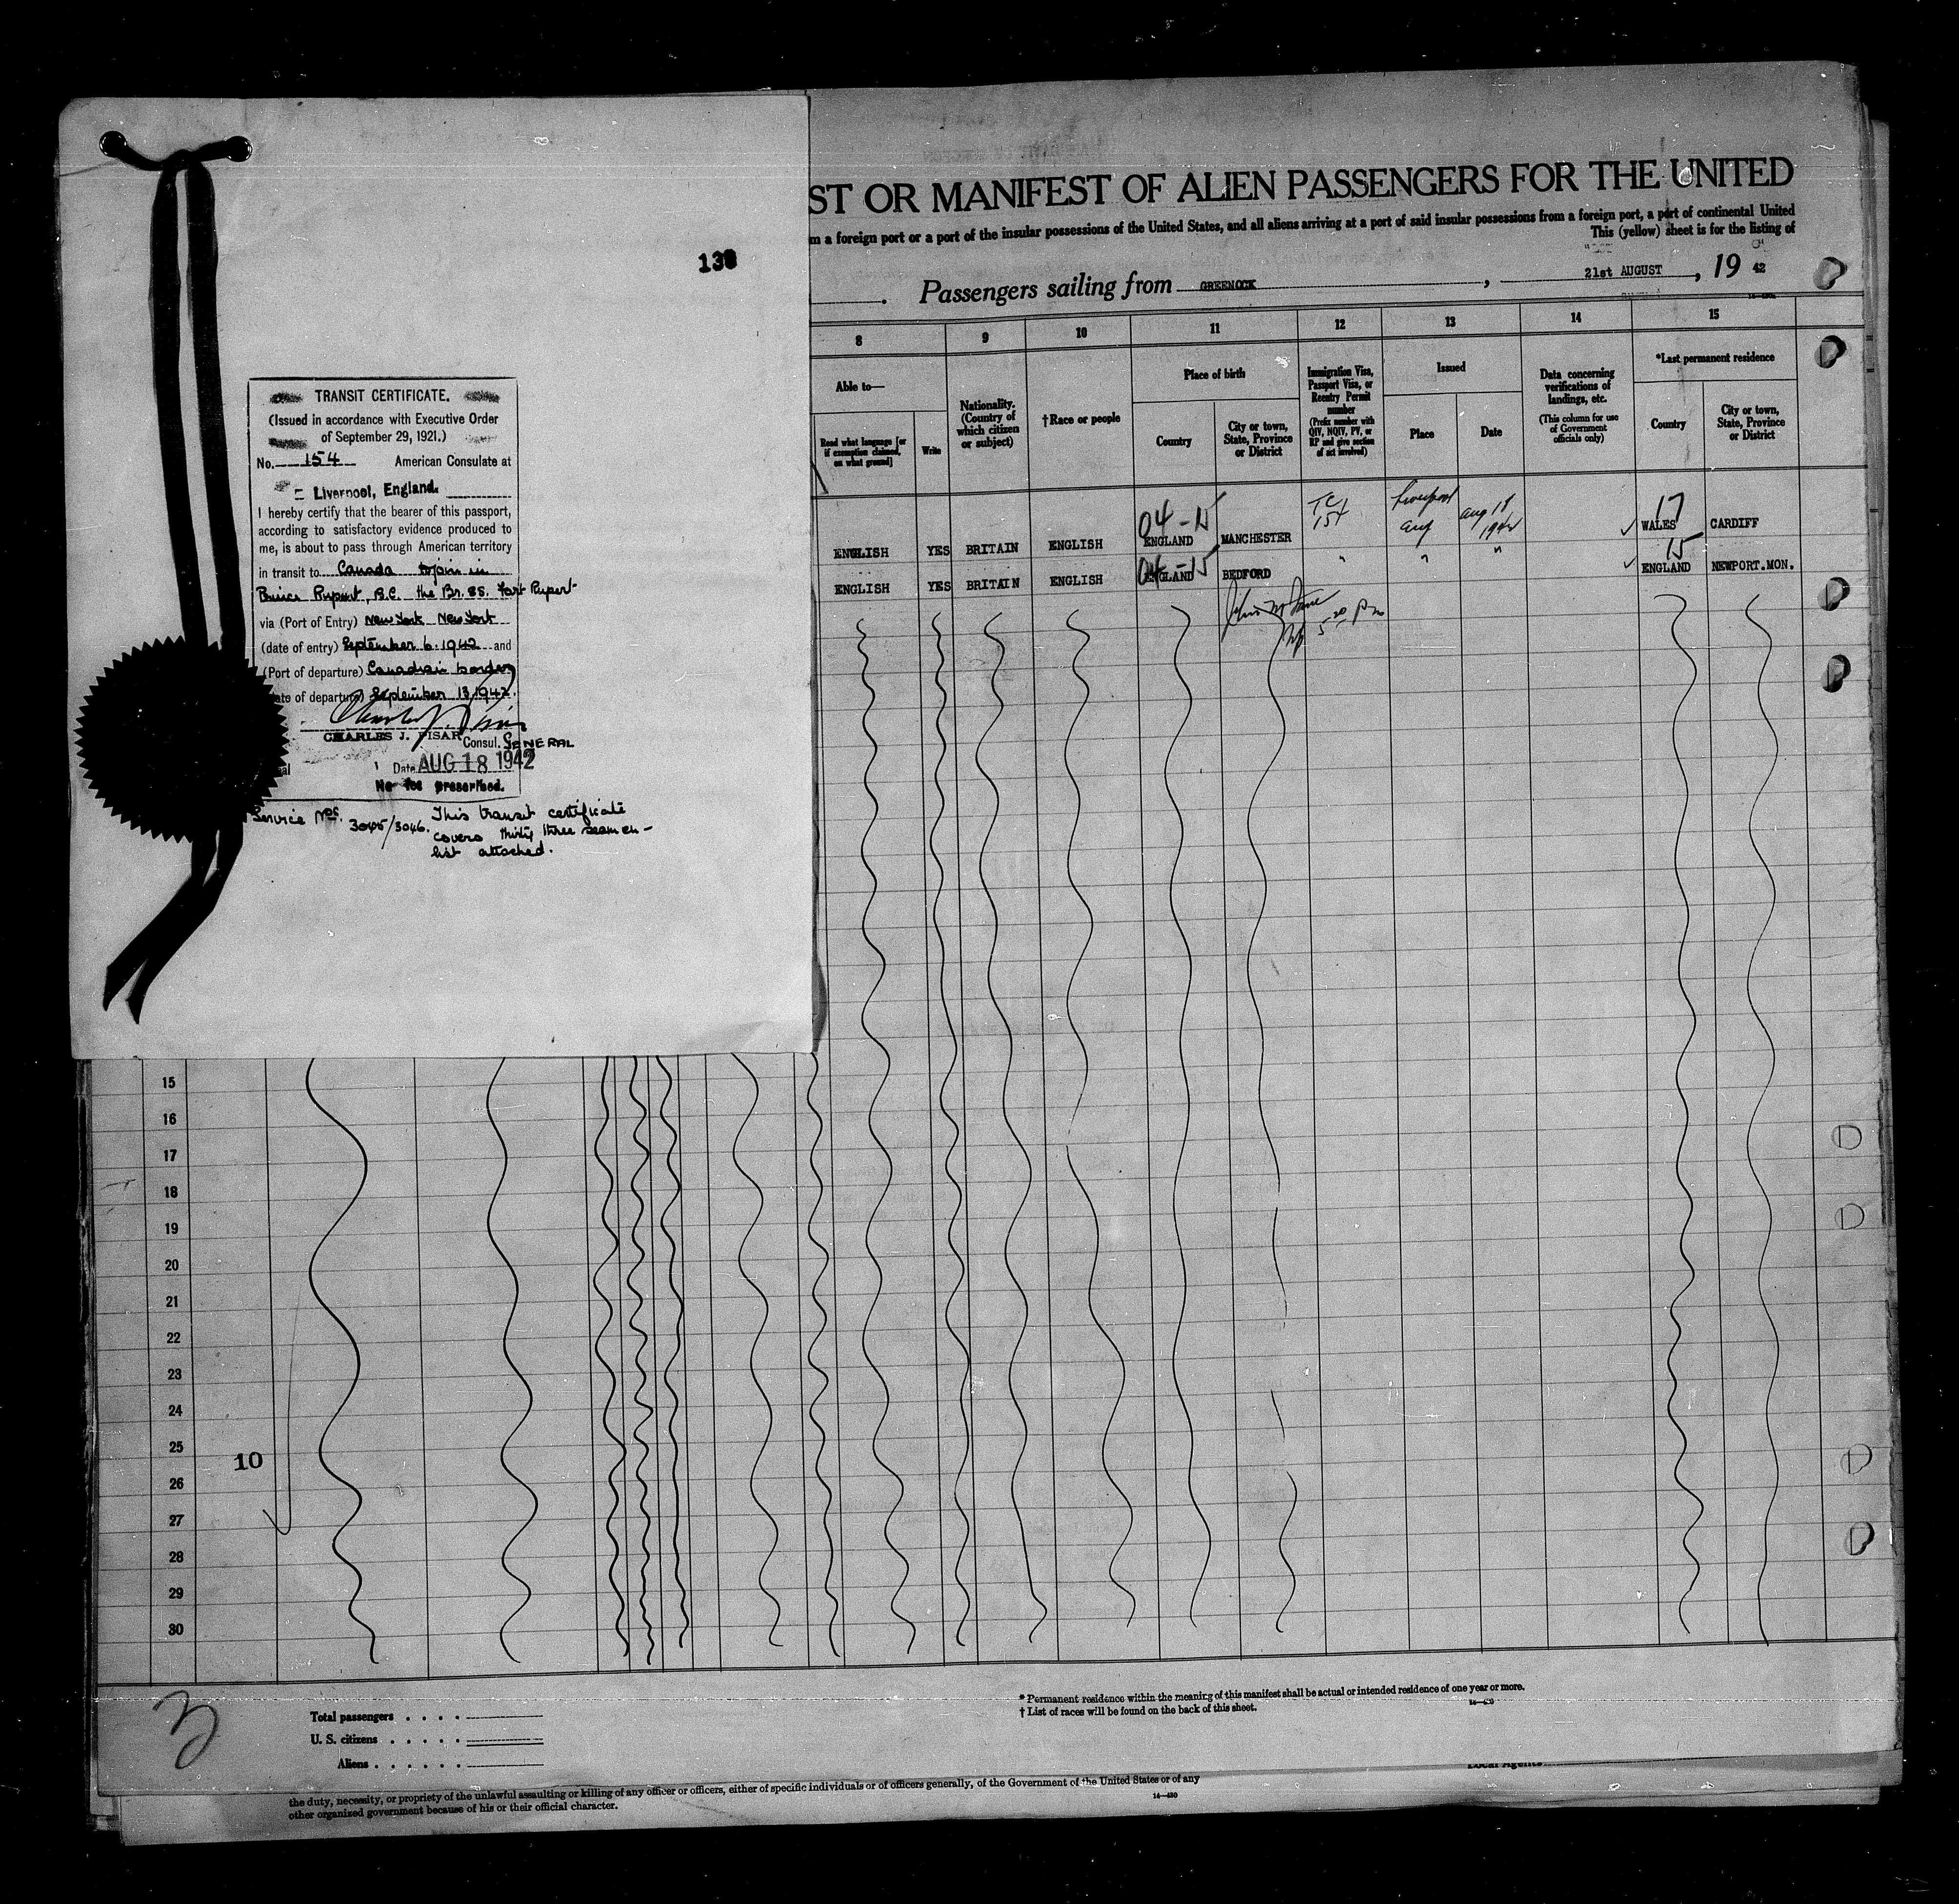 138
TRANSIT CERTIFICATE.
(Issued in accordance with Executive Order
of September 29, 1921.)
No. 154 American Consulate at
Liverpool, England.
I hereby certify that the bearer of this passport,
according to satisfactory evidence produced to
me, is about to pass through American territory
in transit to Canada to join in
Prince Rupert, B.C. the Br. SS. Fort Rupert
via (Port of Entry) New York New York
(date of entry) September 6. 1942 and
(Port of departure) Canadian border
ate of departure) September 13, 1942.
CHARLES J. PISAR Consul. GENERAL
al Date AUG 18 1942
No fee prescribed.
Service Nos. 3045/3046. This transit certificate
covers thirty three seamen -
list attached.
ST OR MANIFEST OF ALIEN PASSENGERS FOR THE UNITED
m a foreign port or a port of the insular possessions of the United States, and all aliens arriving at a port of said insular possessions from a foreign port, a port of continental United
This (yellow) sheet is for the listing of
Passengers sailing from GREENOCK, 21st AUGUST, 19 42
8 9 10 11 12 13 14 15
Able to—
Read what language [or if exemption claimed, on what ground]
Write
Nationality. (Country of which citizen or subject)
†Race or people
Place of birth
Country
City or town, State, Province or District
Immigration Visa, Passport Visa, or Reentry Permit number
(Prefix number with QIV, NQIV, PV, or RP and give section of act involved)
Issued
Place
Date
Data concerning verifications of landings, etc.
(This column for use of Government officials only)
*Last permanent residence
Country
City or town, State, Province or District
04-15 TC 154 Liverpool Aug 18 1942 17
ENGLISH YES BRITAIN ENGLISH ENGLAND MANCHESTER WALES CARDIFF
04-15 " " " 15
ENGLISH YES BRITAIN ENGLISH ENGLAND BEDFORD ENGLAND NEWPORT.MON.
15
16
17
18
19
20
21
22
23
24
25
10
26
27
28
29
30
* Permanent residence within the meaning of this manifest shall be actual or intended residence of one year or more.
† List of races will be found on the back of this sheet.
Total passengers . . . .
U. S. citizens . . . . .
Aliens . . . . . .
3
Local Agents
the duty, necessity, or propriety of the unlawful assaulting or killing of any officer or officers, either of specific individuals or of officers generally, of the Government of the United States or of any
other organized government because of his or their official character.
14—430